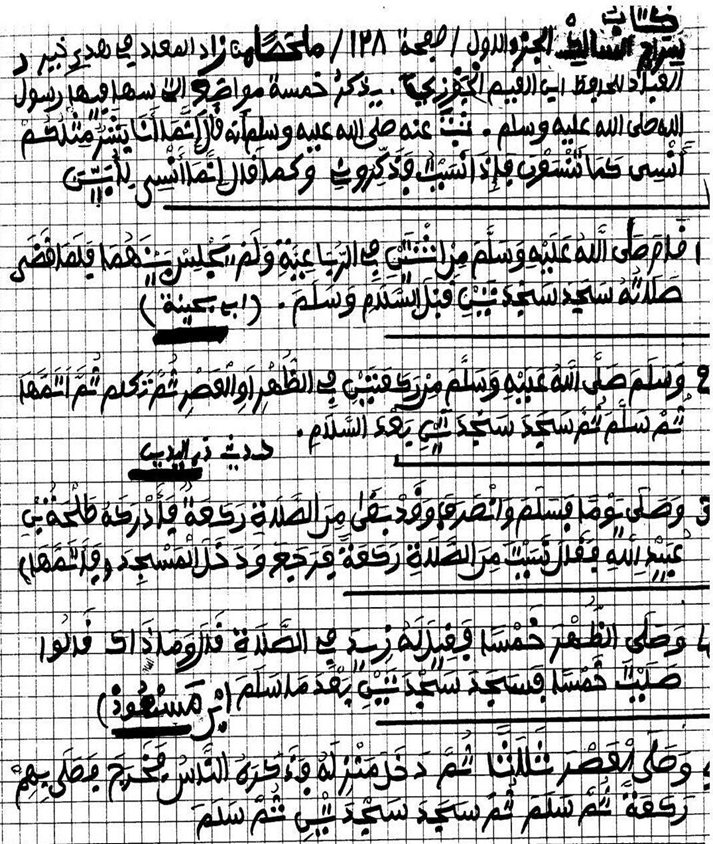 كتاب
سراج السالك الجزء الاول / صفحة ١٢٨ / ملخصا من زاد المعاد في هدي خير
العباد للحافظ ابن القيم الجوزي. يذكر خمسة مواضع التي سها فيها رسول
الله صلى الله عليه وسلم. ثبت عنه صلى الله عليه وسلم أنه قال إنما أنا بشر مثلكم
أنسى كما تنسون فإذا نسيت فذكروني وكما قال إنما أنسى
1 قام صلى الله عليه وسلم من اثنتين في الرباعية ولم يجلس بينهما فلما قضى
صلاته سجد سجدتين قبل السلام وسلم. (اب بحينة)
2 وسلم صلى الله عليه وسلم من ركعتين في الظهر او العصر ثم تكلم ثم اتمها
ثم سلم ثم سجد سجدتين بعد السلام.
حديث ذي اليدين
3 وصلى يوما فسلم وانصرف وقد بقى من الصلاة ركعة فأدركه طلحة بن
عبيد الله فقال نسيت من الصلاة ركعة فرجع ودخل المسجد (فأتمها)
4 وصلى الظهر خمسا فقيل له زيد في الصلاة قال وما ذاك قالوا
صليت خمسا فسجد سجدتين بعد ما سلم (ابن مسعود)
وصلى العصر ثلاثا ثم دخل منزله فذكره الناس فخرج فصلى بهم
ركعة ثم سلم ثم سجد سجدتين ثم سلم